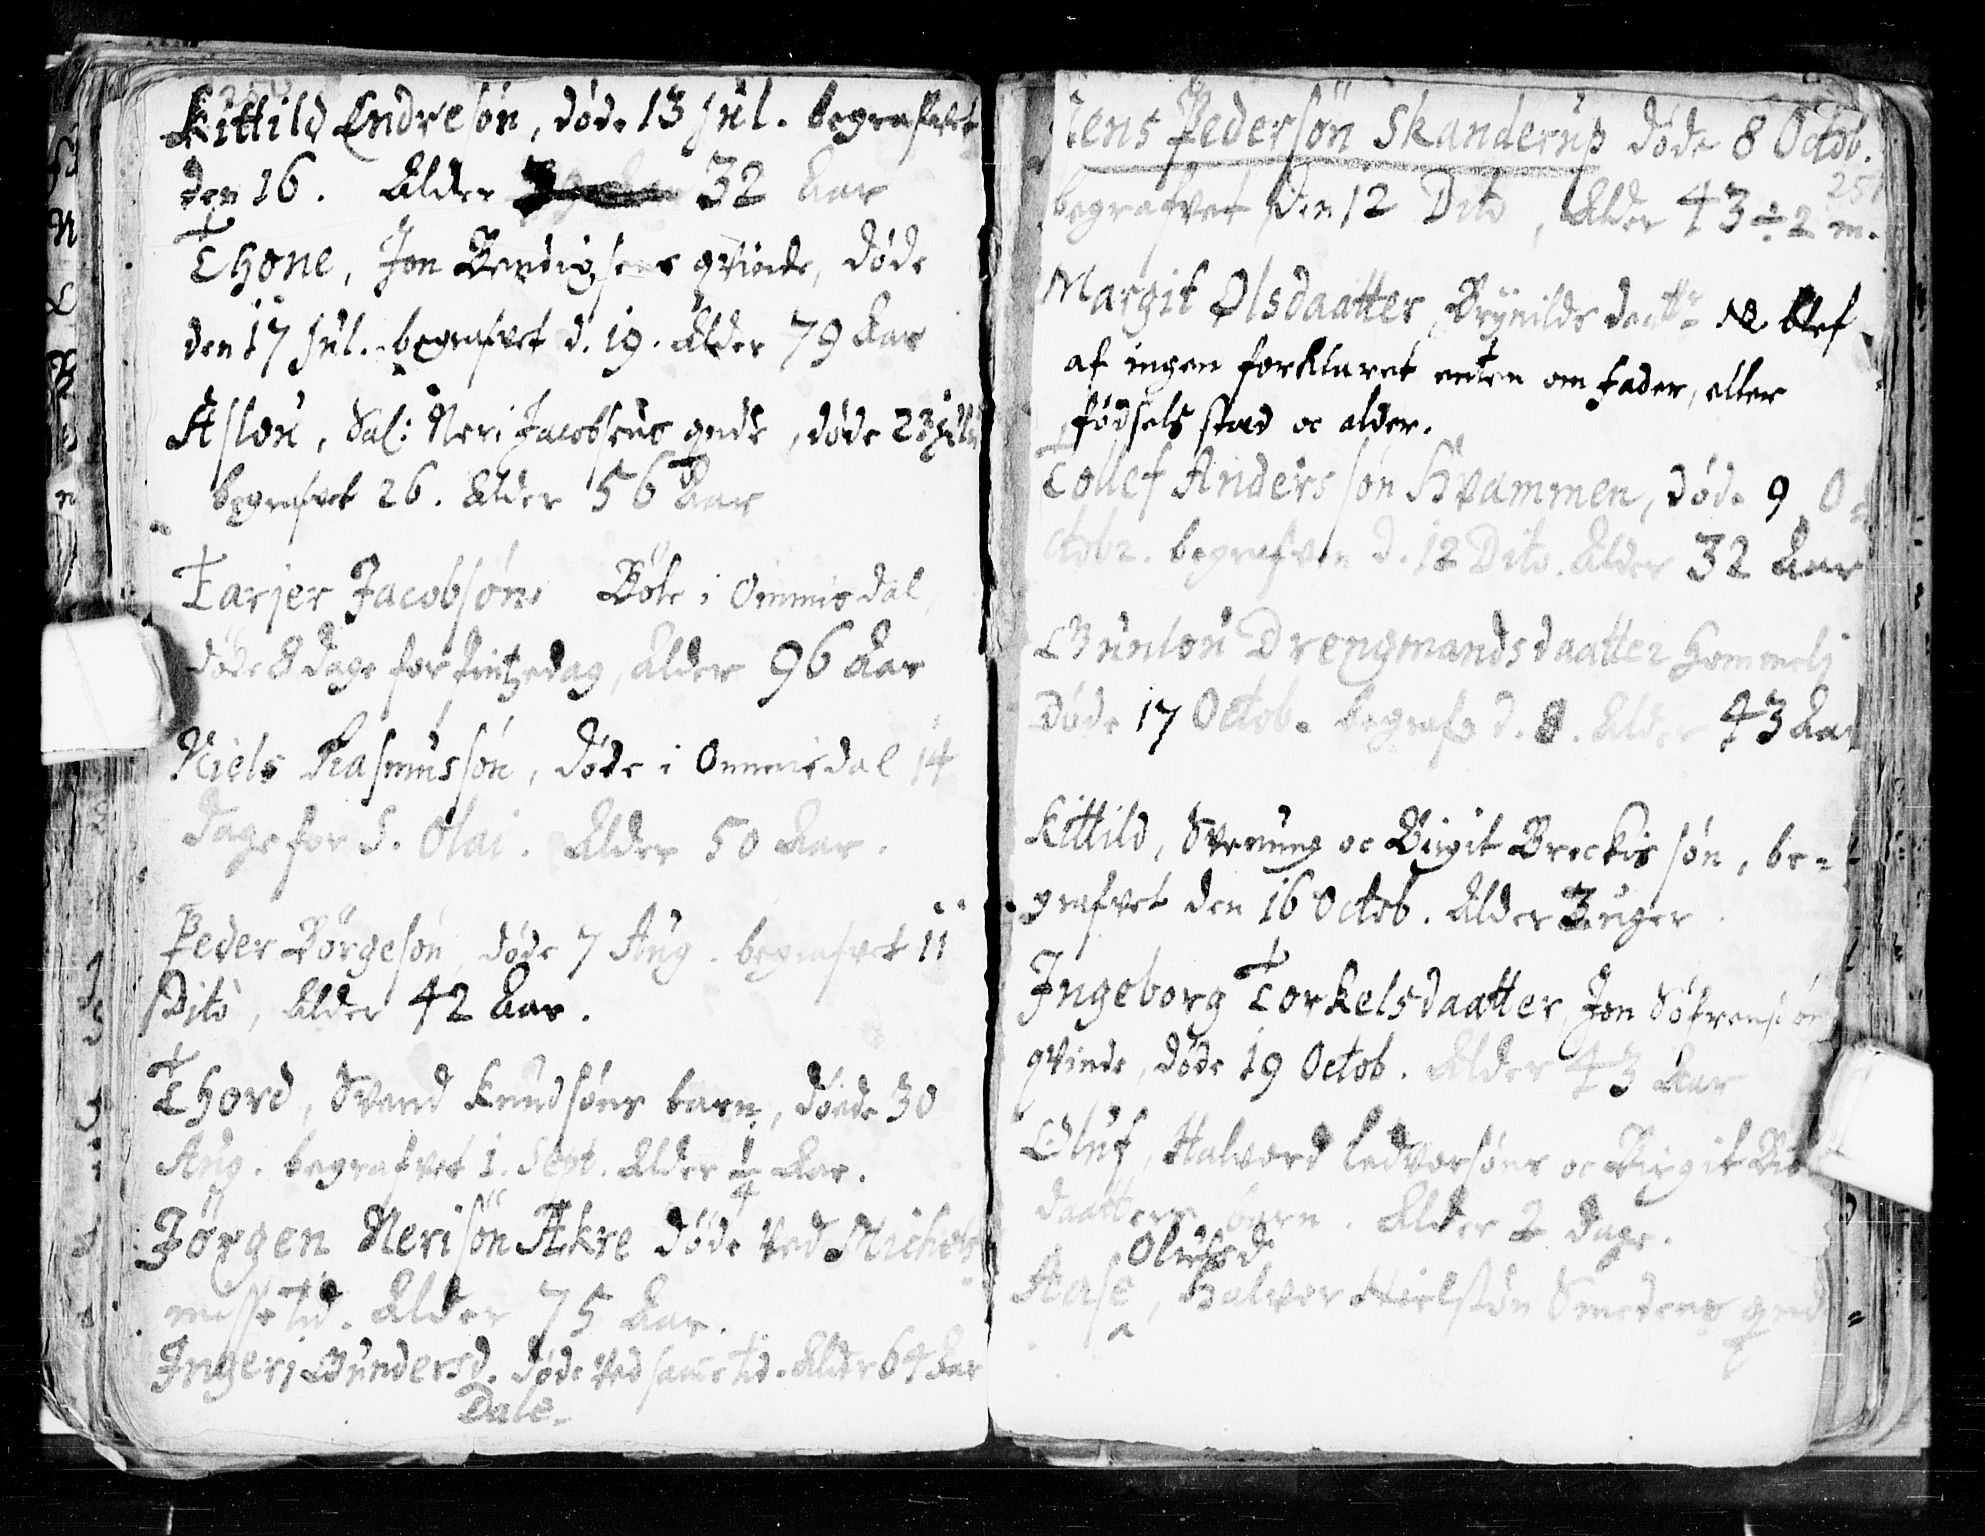 250
Kittild Endresøn, døde 13 Jul. begrafvet
den 16. Alder 32 Aar
Thone, Jon Bendigsens qvinde, døde
den 17 Jul. begrafvet d. 19. Alder 79 Aar
Aslou, Sal: Neri Jacobsens qvde, døde 23 Julii
begrafvet 26. Alder 56 Aar
Tarjer Jacobsøn Bøle i Ommisdal,
døde 8 Dage for Pintzedag, Alder 96 Aar
Niels Rasmussøn, døde i Ommisdal 14
Dage for S. Olai. Alder 50 Aar.
Peder Børgesøn, døde 7 Aug. begrafvet 11
Dito, Alder 42 Aar.
Thord, Svend Knudsøns barn, døde 30
Aug. begrafvet 1. Sept. Alder 1/4 Aar.
Jørgen Nerisøn Åkre døde ved Michels
misse tid. Alder 75 Aar.
Ingerj Gundersd. døde ved samme tid. Alder 64 Aar
Dale.
Jens Pedersøn Skanderup døde 8 Octob.
251
begrafvet den 12 Dito, Alder 43 ÷ 2 m.
Margit Olsdaatter, Brynilds daattr NB blef
af ingen forklaret enten om fader, eller
fødsels stad oc alder.
Tollef Anderssøn Hvammen, døde 9 O=
ctobr. begrafven d. 12 Dito. Alder 32 Aar
Gunlou Drengmandsdaatter Hommelj
Døde 17 Octob. begrafv d. 8. Alder 43 Aar
Kittild, Svenung oc Birgit Breckis søn, be=
grafvet den 16 Octob. Alder 3 uger
Ingeborg Torkelsdaatter, Jon Søfrensøns
qvinde, døde 19 Octob. Alder 43 Aar
Oluf, Halvord Ledvorsøns oc Birgit
daatters barn. Alder 2 dage.
Olufsd
Aase, Halvor Nielsøn Smedens qvde